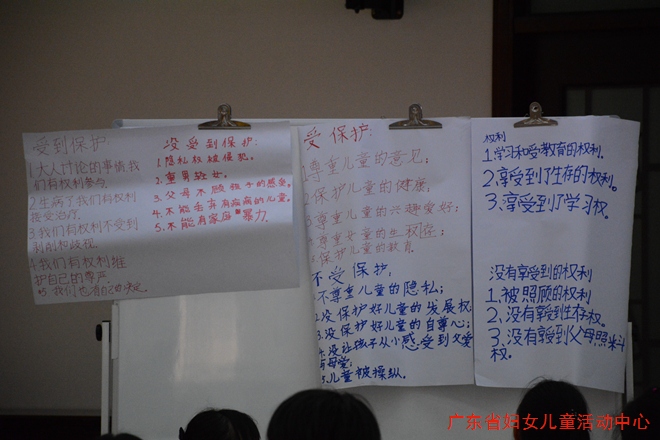 受到保护:
1.大人讨论的事情我
们有权利参与
2.生病了我们有权利
接受治疗.
3.我们有权利不受到
剥削和歧视.
4.我们有权利维
护自己的尊严.
没受到保护:
1.隐私权被侵犯.
2.重男轻女.
3.父母不顾孩子的感受.
4.不能丢弃有疾病的儿童.
5.不能有家庭暴力.
受保护:
1尊重儿童的意见;
2保护儿童的健康;
3尊重儿童的兴趣爱好;
4尊重女童的生权;
5保护儿童的教育.
不受保护:
1.不尊重儿童的隐私;
2.没保护好儿童的发展权;
3.没保护好儿童的自尊心;
4.没让孩子从小感受到父爱
与母爱;
5.儿童被操纵.
权利
1.学习和受教育的权利.
2.享受到了生存的权利.
3.享受到了学习权.
没有享受到的权利
1.被照顾的权利
2.没有享受到生存权.
3.没有享受到父母照料
权.
广东省妇女儿童活动中心